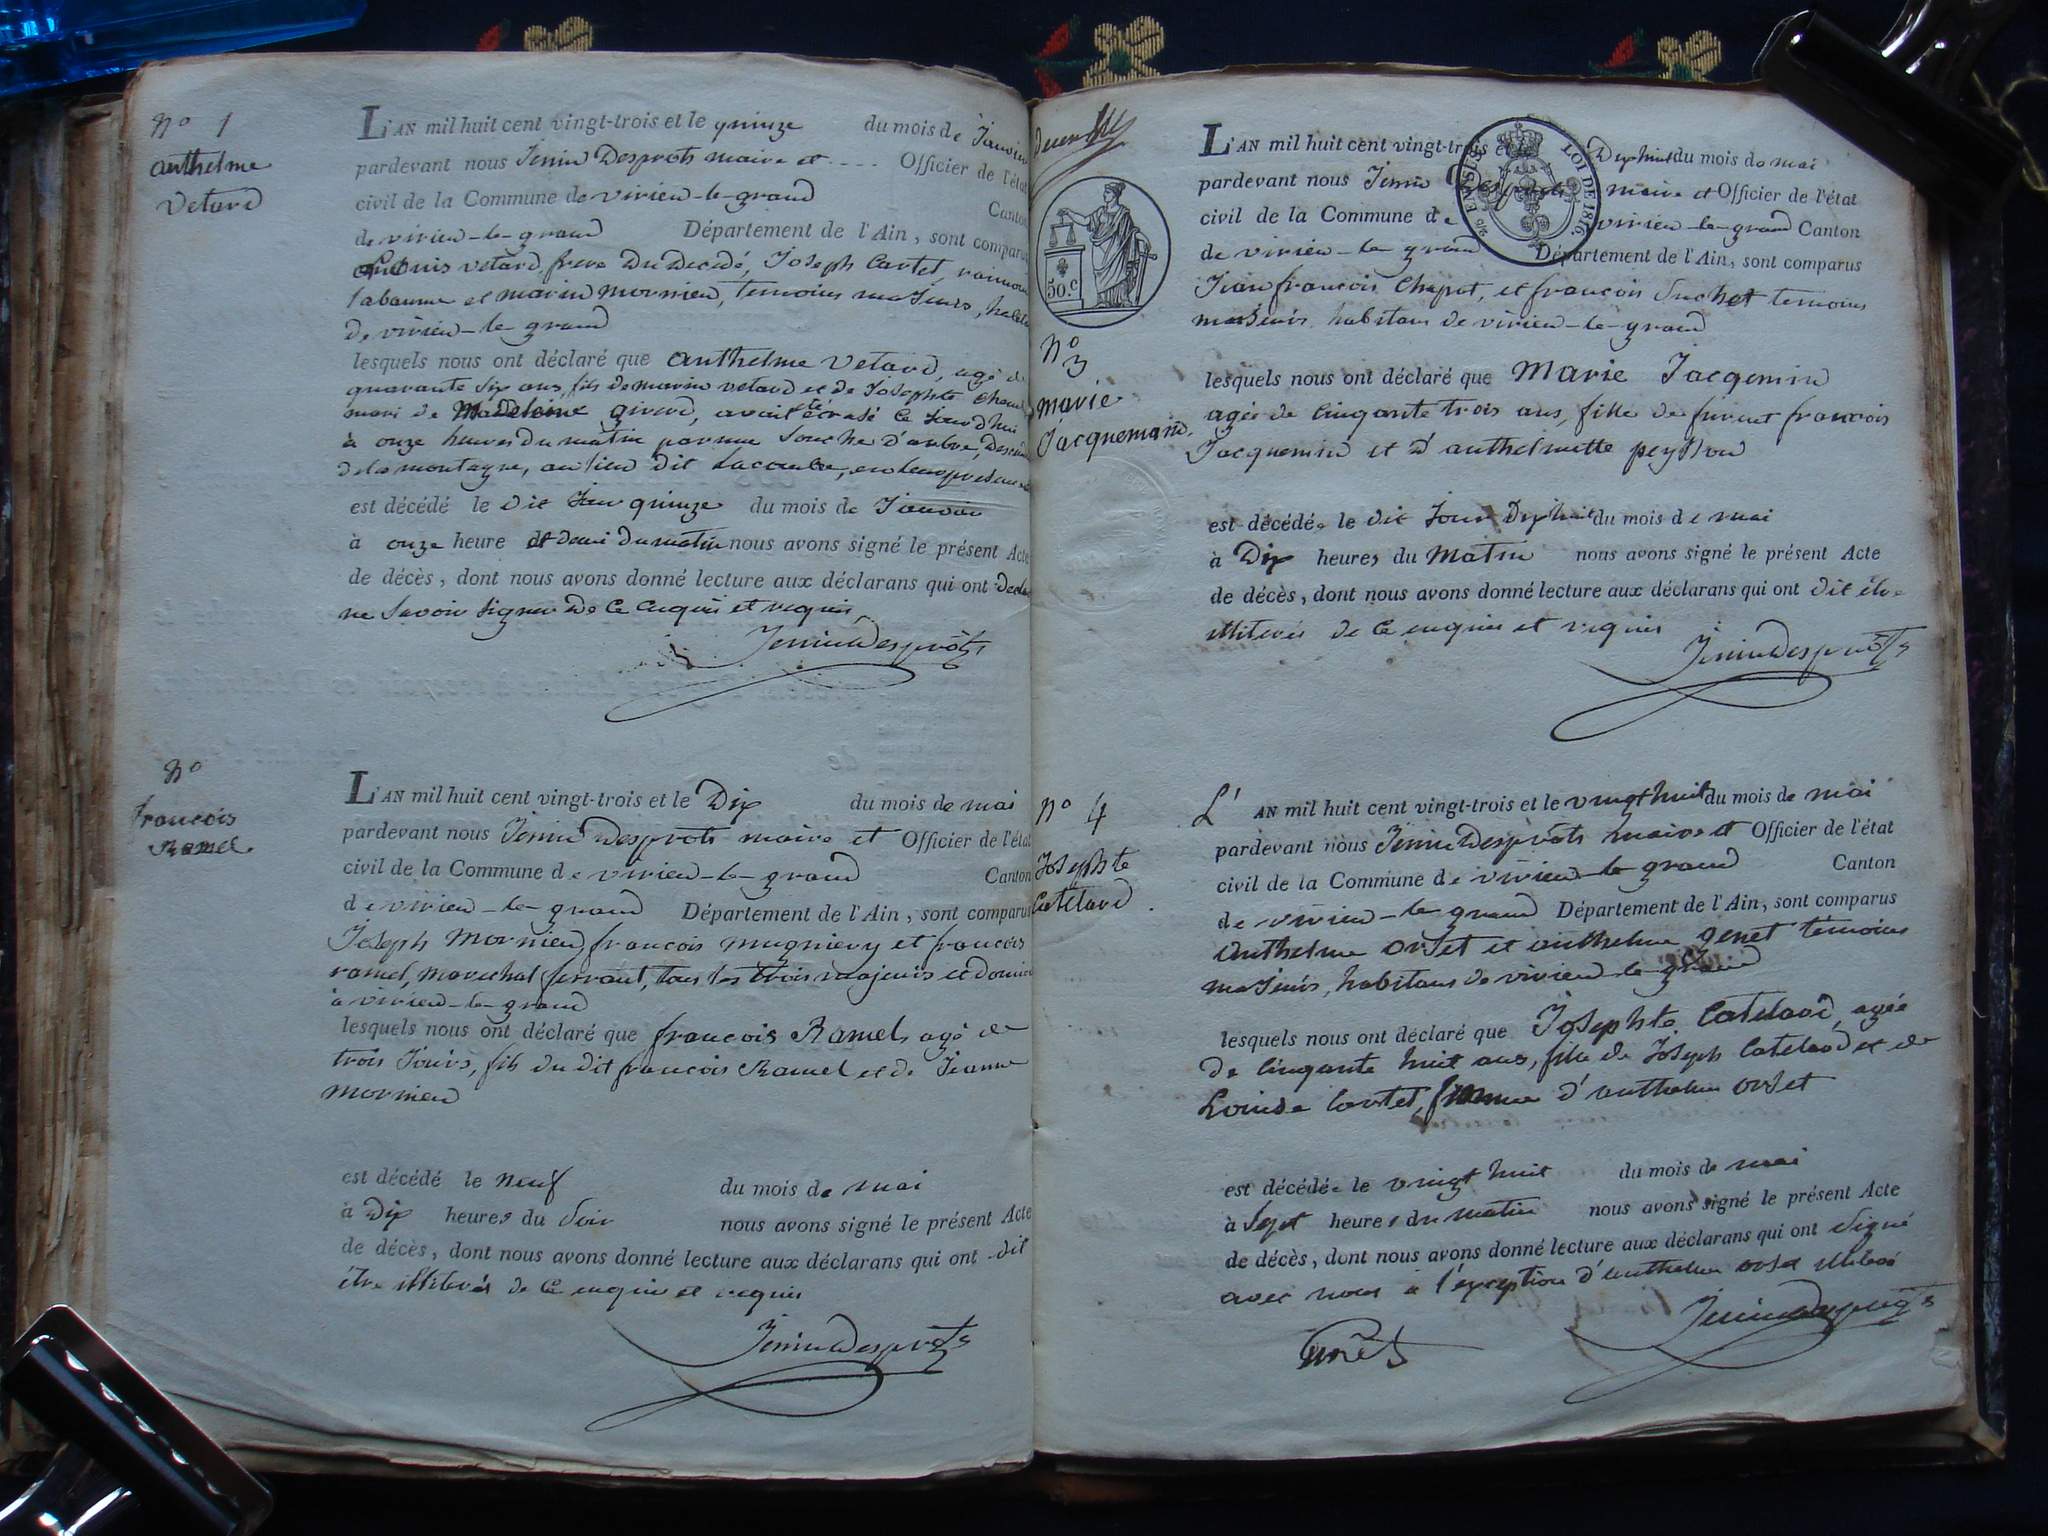 No 1
anthelme
Vetard
L'AN mil huit cent vingt-trois et le quinze du mois de Janvier
pardevant nous Jenin Desprots maire et Officier de l'état
civil de la Commune de virieu-le-grand Canton
de virieu-le-grand Département de l'Ain, sont comparus
Louis vetard frere du decedé, Joseph Cartet,
Labaume et marin mornieu, temoins majeurs,
de virieu-le grand
lesquels nous ont déclaré que anthelme Vetard, agé de
quarante six ans, fils de marin vetard et de Josephte
mari de Madeleine girerd, avait été ecrasé ce jourd'hui
à onze heures du matin par une souche d'arbre,
de la montagne, au lieu dit Lacombe,
est décédé le dit jour quinze du mois de Janvier
à onze heure et demi du matin nous avons signé le présent Acte
de décès, dont nous avons donné lecture aux déclarans qui ont
ne savoir signer de ce enquis et requis,
Jenin Desprots
No
francois
Ramel
L'AN mil huit cent vingt-trois et le Dix du mois de mai
pardevant nous Jenin Desprots maire et Officier de l'état
civil de la Commune de virieu-le-grand Canton
de virieu-le-grand Département de l'Ain, sont comparus
Joseph Mornieu, francois mugniery et francois
ramel, marechal ferrant, tous les trois majeurs et
à virieu-le-grand
lesquels nous ont déclaré que francois Ramel, agé de
trois jours, fils du dit francois Ramel et de Jeanne
mornieu
est décédé le neuf du mois de mai
à Dix heures du soir nous avons signé le présent Acte
de décès, dont nous avons donné lecture aux déclarans qui ont dit
être illiterés de ce enquis et requis
Jenin Desprots
50.c
No 3
marie
Jacquemain.
L'AN mil huit cent vingt-trois et le Dix huit du mois de mai
LOI DE 1816.
pardevant nous Jenin Desprots maire et Officier de l'état
civil de la Commune de virieu-le-grand Canton
de virieu-le grand Département de l'Ain, sont comparus
Jean francois Chapot, et francois Suchet temoins
majeurs habitans de virieu-le-grand
lesquels nous ont déclaré que Marie Jacqemin
agée de Cinqante trois ans, fille de furent francois
Jacquemin et d'anthelmette peysson
est décédée le dit jour Dix huit du mois de mai
à Dix heures du Matin nous avons signé le présent Acte
de décès, dont nous avons donné lecture aux déclarans qui ont dit être
illiterés de ce enquis et requis
Jenin Desprots
No 4
Josephte
Catelard.
L'AN mil huit cent vingt-trois et le vingt huit du mois de mai
pardevant nous Jenin Desprots maire et Officier de l'état
civil de la Commune de virieu-le grand Canton
de virieu-le grand Département de l'Ain, sont comparus
Anthelme orset et anthelme genet témoins
majeurs, habitans de virieu-le-grand
lesquels nous ont déclaré que Josephte Catelard, agée
de Cinqante huit ans, fille de Joseph Catelard et de
Louise Cartet, femme d'anthelme orset
est décédée le vingt huit du mois de mai
à Sept heures du matin nous avons signé le présent Acte
de décès, dont nous avons donné lecture aux déclarans qui ont signé
avec nous à l'exception d'anthelme orset illiteré
Jenin Desprots